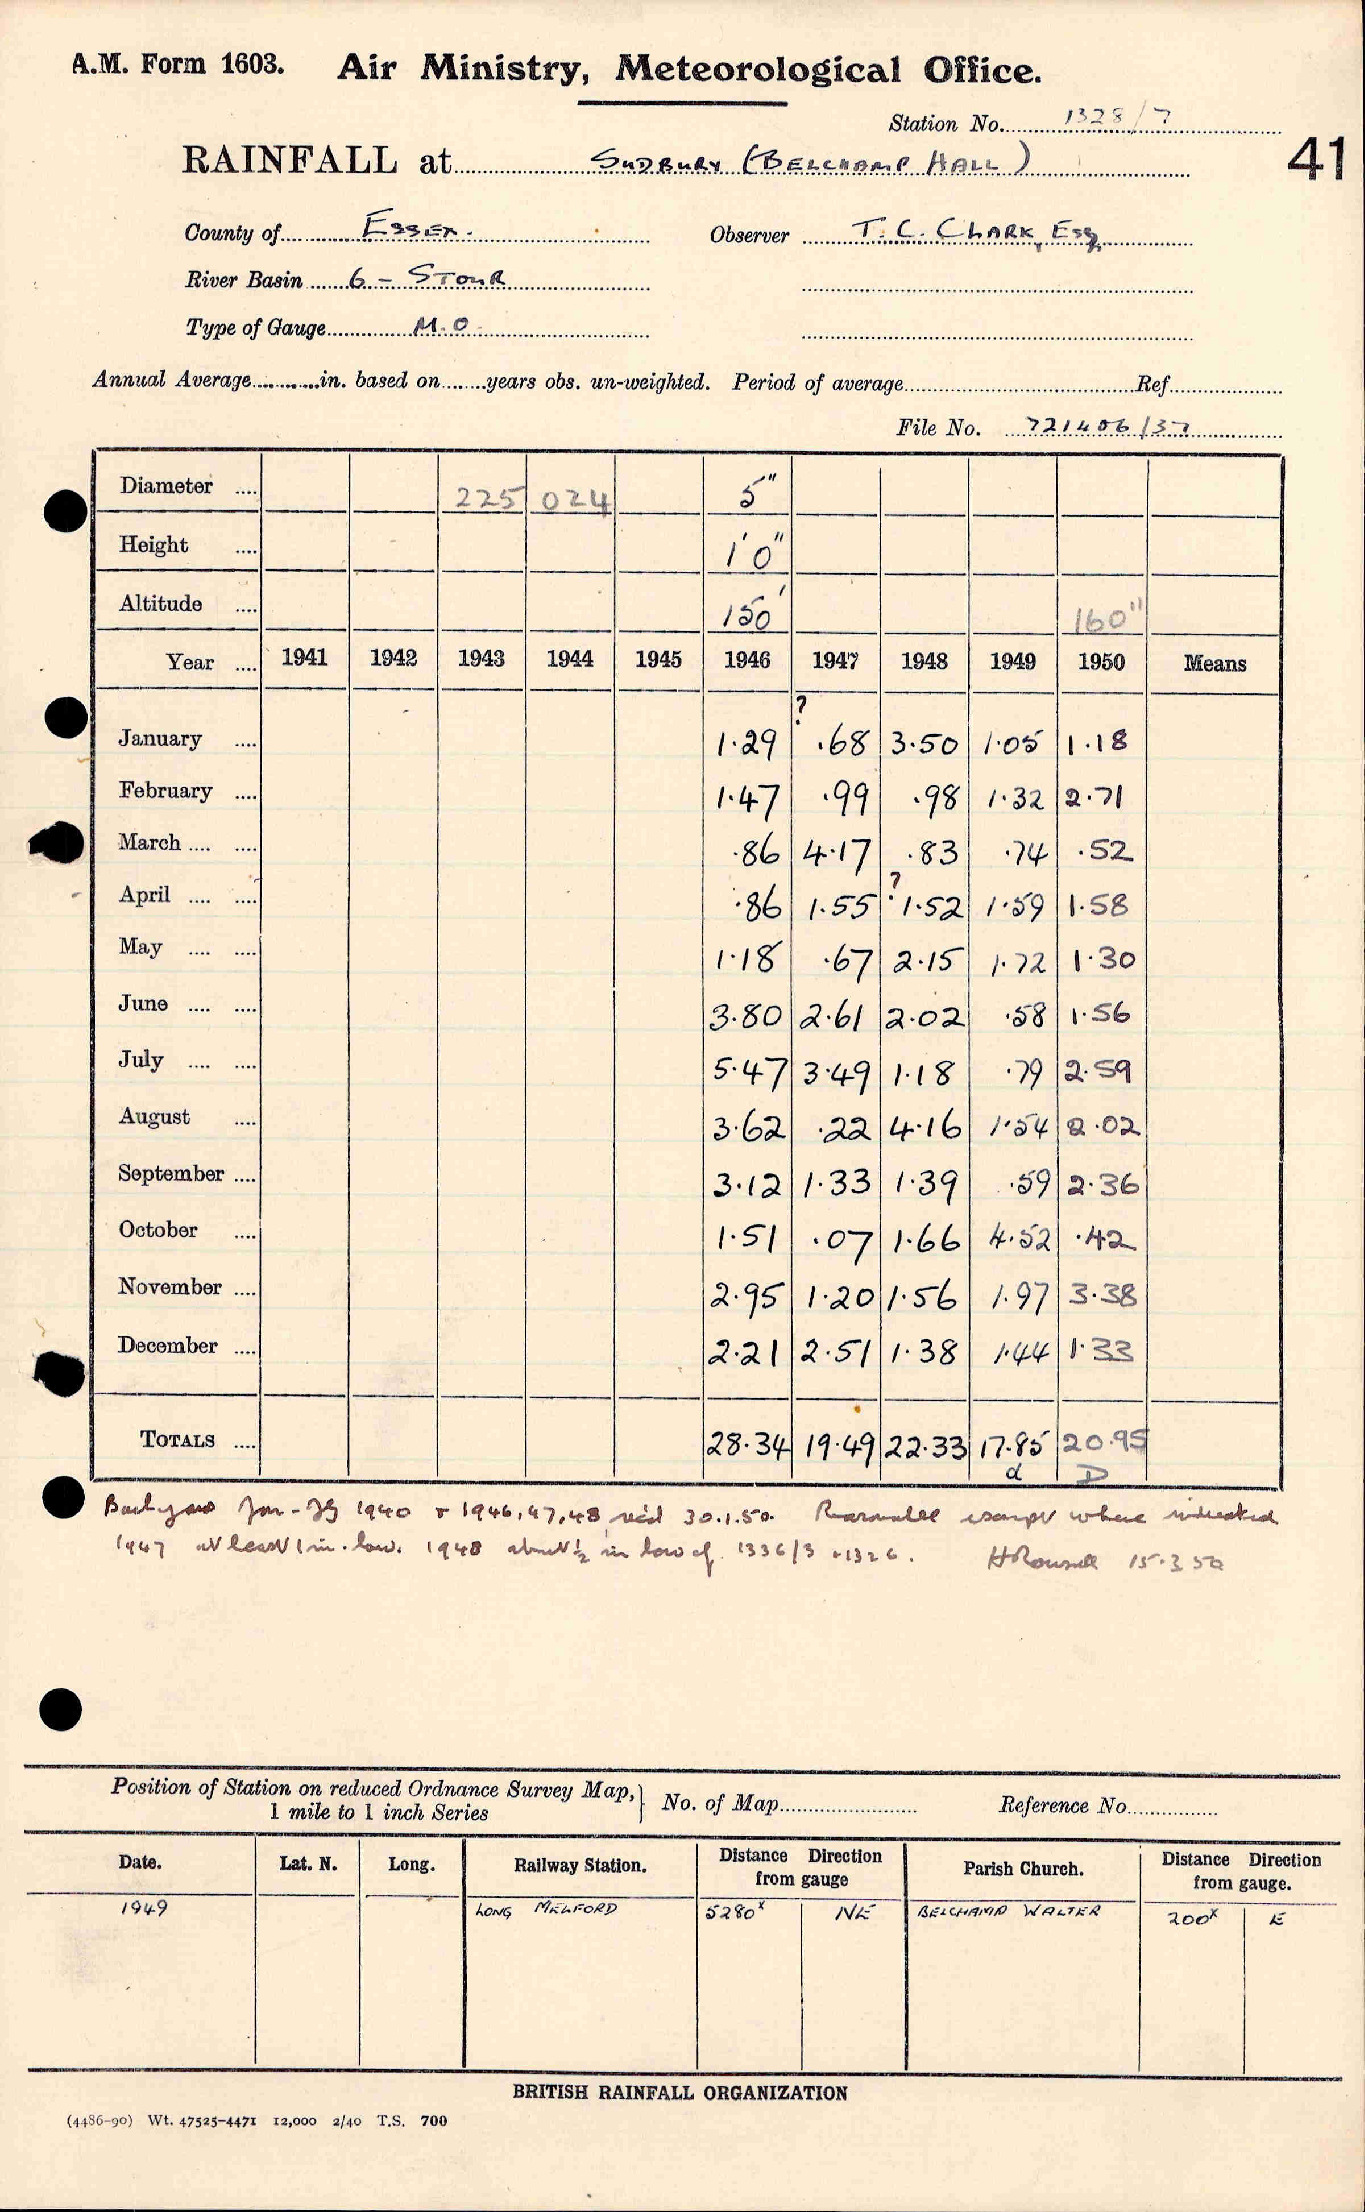 A.M. Form 1603. Air Ministry, Meteorological Office.
Station No. 1328/7
RAINFALL at SUDBURY (BELCHAMP HALL)
41
County of ESSEX. Observer T. C. CLARK, Esq.
River Basin 6 - STOUR
Type of Gauge M.O.
Annual Average in. based on years obs. un-weighted. Period of average Ref.
File No. 721406/37
Diameter .... 225 024 5"
Height .... 1'0"
Altitude .... 150' 160"
Year .... 1941 1942 1943 1944 1945 1946 1947 1948 1949 1950 Means
?
January .... 1.29 .68 3.50 1.05 1.18
February .... 1.47 .99 .98 1.32 2.71
March .... .... .86 4.17 .83 .74 .52
?
April .... .... .86 1.55 1.52 1.59 1.58
May .... .... 1.18 .67 2.15 1.72 1.30
June .... .... 3.80 2.61 2.02 .58 1.56
July .... .... 5.47 3.49 1.18 .79 2.59
August .... 3.62 .22 4.16 1.54 2.02
September .... 3.12 1.33 1.39 .59 2.36
October .... 1.51 .07 1.66 4.52 .42
November .... 2.95 1.20 1.56 1.97 3.38
December .... 2.21 2.51 1.38 1.44 1.33
TOTALS .... 28.34 19.49 22.33 17.85 20.95
d D
Jan - 1940 + 1946, 47, 48 rec'd 30.1.50. except where indicated
1947 at least 1 in. low. 1948 about ½ in low cf. 1336/3 + 1326. 15.3.50
Position of Station on reduced Ordnance Survey Map, } No. of Map Reference No.
1 mile to 1 inch Series
Date. Lat. N. Long. Railway Station. Distance Direction from gauge Parish Church. Distance Direction from gauge.
1949 LONG MELFORD 5280x NE BELCHAMP WALTER 200x E
BRITISH RAINFALL ORGANIZATION
(4486-90) Wt. 47525-4471 12,000 2/40 T.S. 700